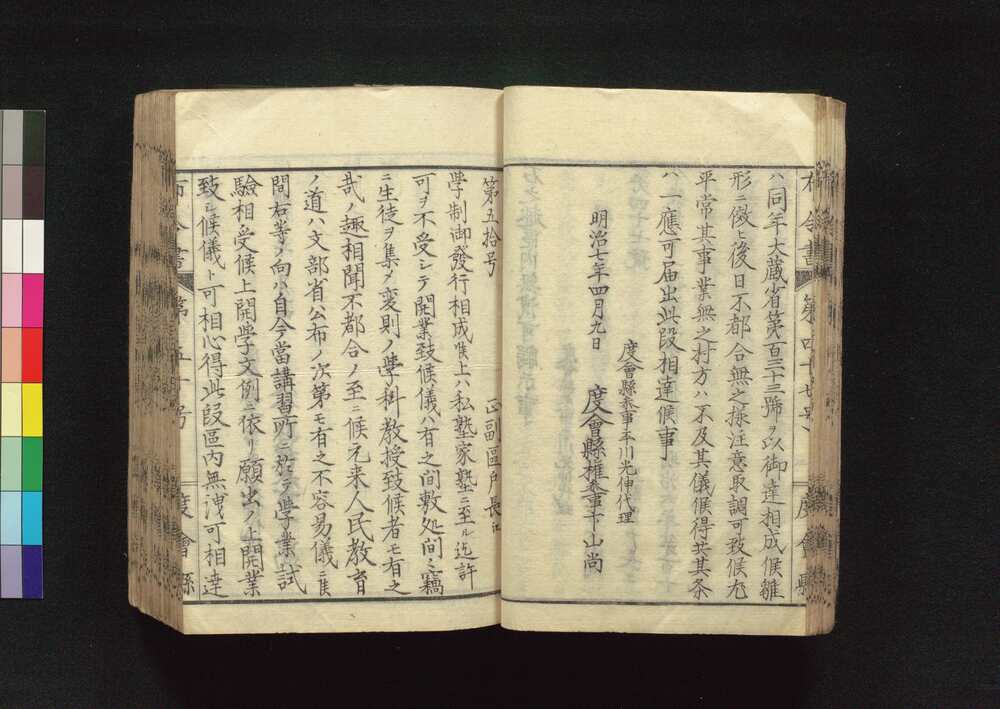 ハ同年大蔵省第百三十三號ヲ以御達相成候雛
形ニ倣ヒ後日不都合無之様注意取調可致候尤
平常其事業無之村方ハ不及其儀候得共其条
ハ一應可届出此段相達候事
度會縣参事平川光伸代理
明治七年四月九日　度會縣権参事下山尚
第五拾号
正副區戸長江
学制御發行相成候上ハ私塾家塾ニ至ル迄許
可ヲ不受シテ開業致候儀ハ有之間敷処間々竊
ニ生徒ヲ集メ変則ノ學科教授致候者モ有之
哉ノ趣相聞不都合ノ至ニ候元来人民教育
ノ道ハ文部省公布ノ次第モ有之不容易儀ニ候
間右等ノ向ハ自今當講習所ニ於テ学業試
驗相受候上開学文例ニ依リ願出ノ上開業
致シ候儀ト可相心得此段區内無洩可相達